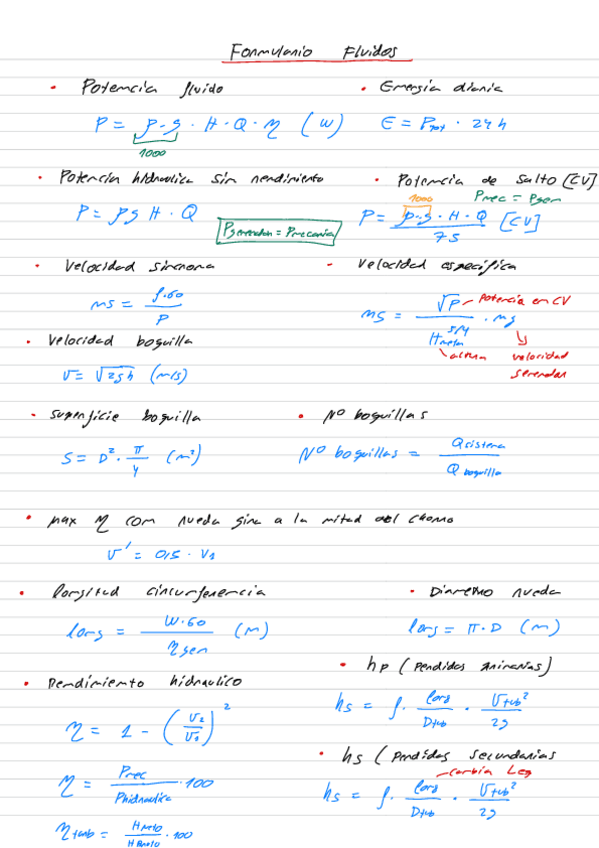 Formulario Fluidos
• Potencia fluido
P = ρ·g · H · Q · η (W)
1000
• Energia diaria
E = Ptot · 24 h
• Potencia hidraulica sin rendimiento
P = ρ g H · Q
Pgenerador = Pmecanica
• Potencia de salto [CV]
1000 Pmec = Pgen
P = ρ·g · H · Q / 75 [CV]
• Velocidad sincrona
ns = f·60 / P
- Velocidad especifica
ns = √P / Hneta^5/4 · ng
Potencia en CV
altura
velocidad
generador
• Velocidad boquilla
v = √2gh (m/s)
• superficie boquilla
S = D² · π/4 (m²)
• Nº boquillas
Nº boquillas = Qsistema / Q boquilla
• max η con rueda gira a la mitad del chorro
v' = 0,5 · v1
• longitud circunferencia
long = W·60 / ηgen (m)
• Diametro rueda
long = π·D (m)
• hp (Perdidas primarias)
hs = f · long/Dtub · vtub²/2g
• Rendimiento hidraulico
η = 1 - (v2/v1)²
η = Pmec / Phidraulica · 100
ηtub = Hneto / HBruto · 100
• hs (Perdidas secundarias
cambia Leq
hs = f · long/Dtub · vtub²/2g